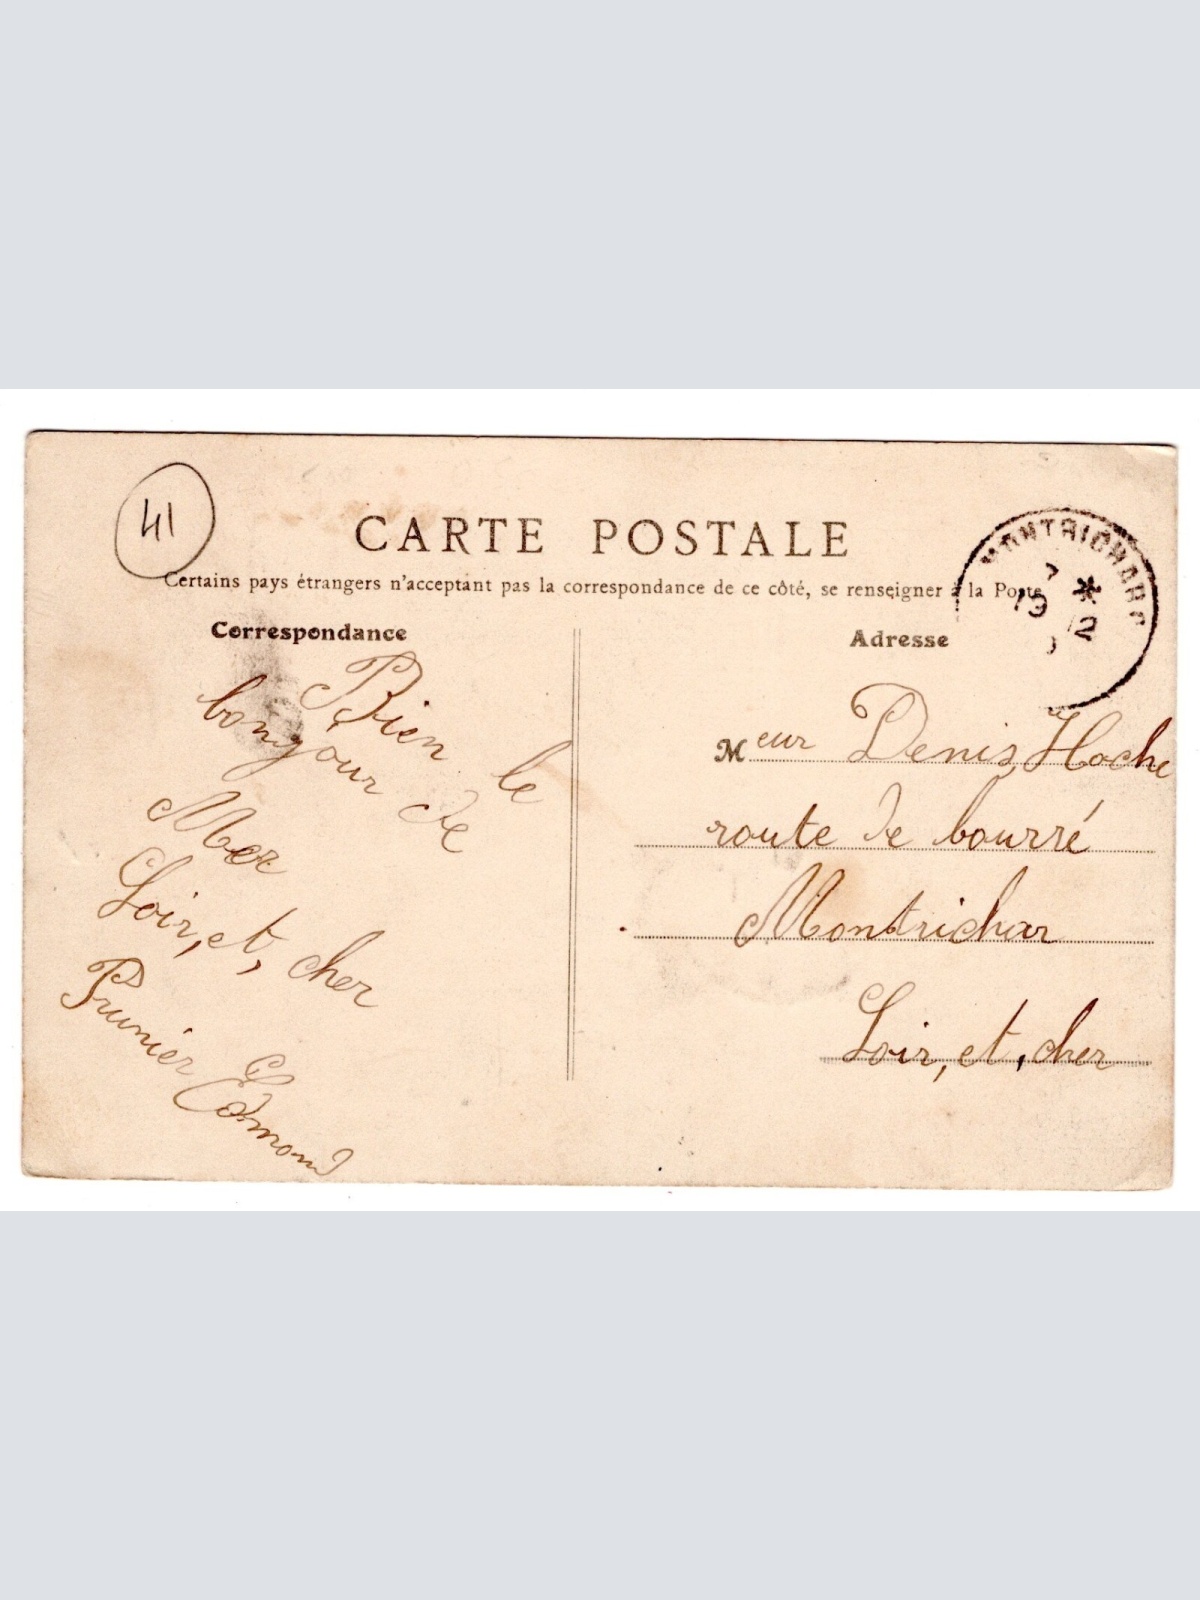 41
CARTE POSTALE
Certains pays étrangers n'acceptant pas la correspondance de ce côté, se renseigner à la Poste
Correspondance
Bien le
bonjour de
Mer
Loir, et, cher
Prunier Edmond
Adresse
MONTRICHARD
Meur Denis Hoche
route de bourré
Montrichar
Loir, et, cher